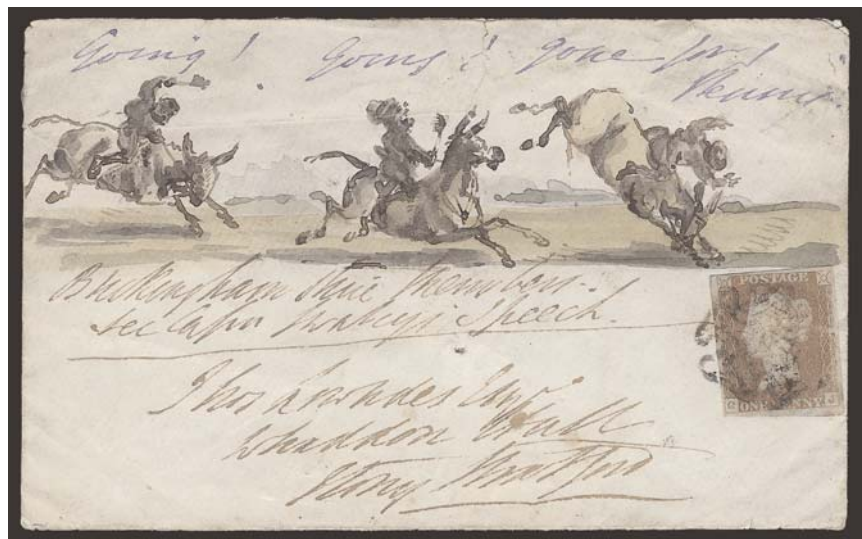 Going! Going! gone for 1
Penny.
Buckinghamshire Members.
see Speech.
Thos Lowndes Esqr
Whaddon Hall
Stony Stratford
POSTAGE
C ONE PENNY J